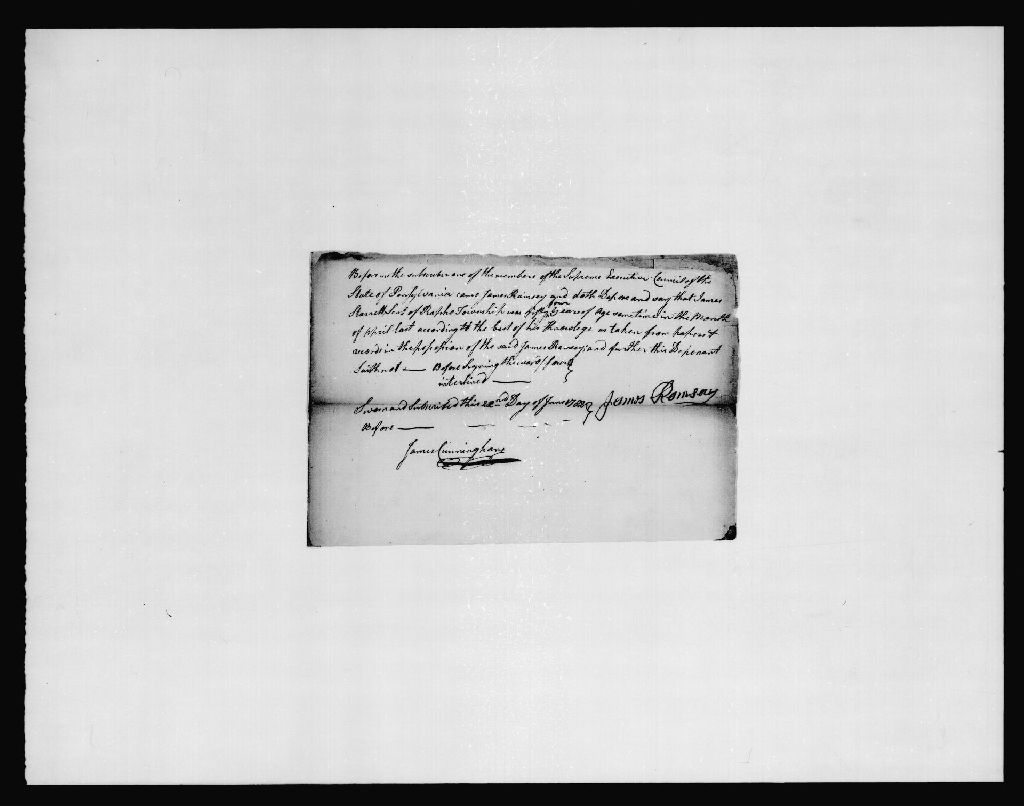 Before me the subscriber one of the members of the Supreme Executive Council of the
State of Pensylvania came James Ramsey and doth Depose and say that James
Starrett Senr. of Rapho Township was fifty four years of Age sometime in the Month
of April last according to the best of his Knowledge as taken from papers &
records in the possession of the said James Ramsey and further this Deponent
Saith not — Before Signing the word four
interlined —
Sworn and Subscribed this 22nd Day of June James Ramsay
Before —
James Cunningham